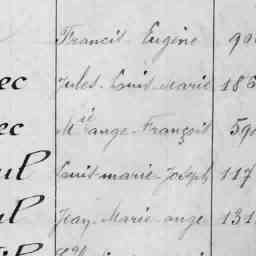 Francis Eugène 90
ec Jules Louis Marie 186
ec M ange François 590
ul Louis marie Joseph 117
ul Jean Marie ange 131